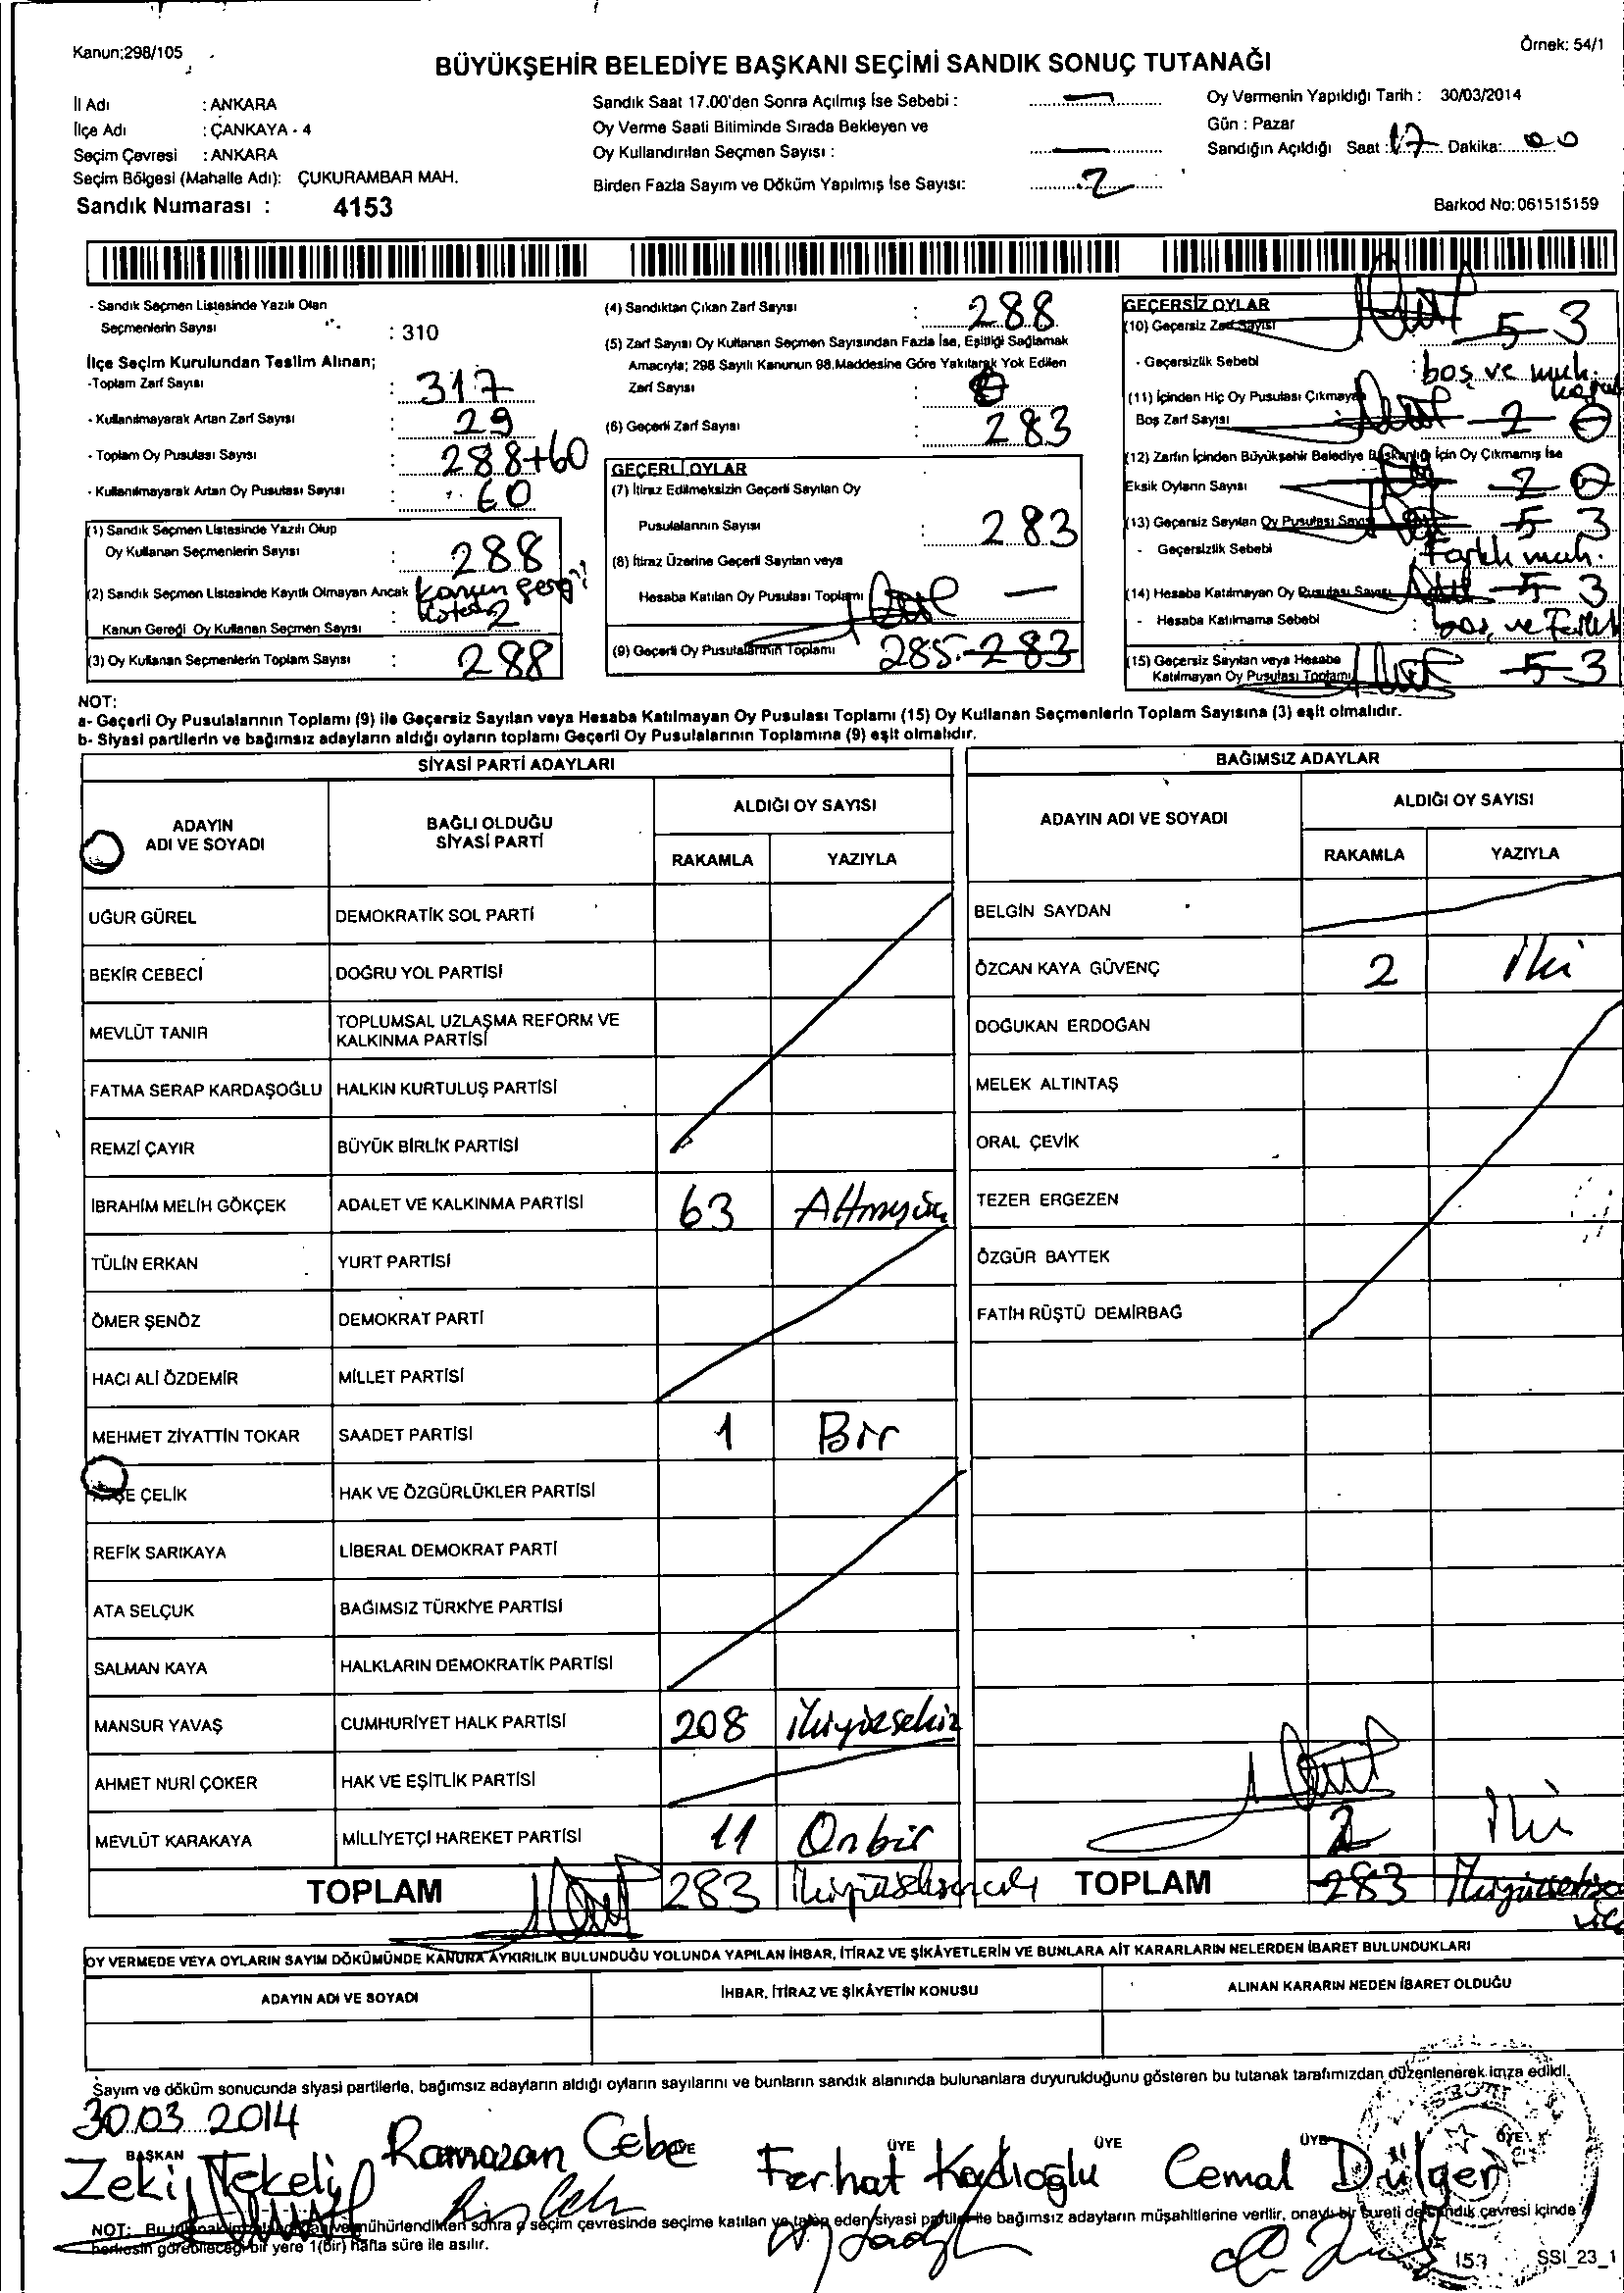 Kanun:298/105
Örnek: 54/1
BÜYÜKŞEHİR BELEDİYE BAŞKANI SEÇİMİ SANDIK SONUÇ TUTANAĞI
İl Adı : ANKARA
İlçe Adı : ÇANKAYA - 4
Seçim Çevresi : ANKARA
Seçim Bölgesi (Mahalle Adı): ÇUKURAMBAR MAH.
Sandık Numarası : 4153
Sandık Saat 17.00'den Sonra Açılmış İse Sebebi : —
Oy Verme Saati Bitiminde Sırada Bekleyen ve
Oy Kullandırılan Seçmen Sayısı : —
Birden Fazla Sayım ve Döküm Yapılmış İse Sayısı: 2
Oy Vermenin Yapıldığı Tarih : 30/03/2014
Gün : Pazar
Sandığın Açıldığı Saat : 17 Dakika: 00
Barkod No: 061515159
- Sandık Seçmen Listesinde Yazılı Olan
Seçmenlerin Sayısı : 310
İlçe Seçim Kurulundan Teslim Alınan;
-Toplam Zarf Sayısı : 317
- Kullanılmayarak Artan Zarf Sayısı : 29
- Toplam Oy Pusulası Sayısı : 288+60
- Kullanılmayarak Artan Oy Pusulası Sayısı : 60
(1) Sandık Seçmen Listesinde Yazılı Olup
Oy Kullanan Seçmenlerin Sayısı : 288
(2) Sandık Seçmen Listesinde Kayıtlı Olmayan Ancak
Kanun Gereği Oy Kullanan Seçmen Sayısı 2
(3) Oy Kullanan Seçmenlerin Toplam Sayısı : 288
(4) Sandıktan Çıkan Zarf Sayısı : 288
(5) Zarf Sayısı Oy Kullanan Seçmen Sayısından Fazla İse, Eşitliği Sağlamak
Amacıyla; 298 Sayılı Kanunun 98.Maddesine Göre Yakılarak Yok Edilen
Zarf Sayısı : 0
(6) Geçerli Zarf Sayısı : 283
GEÇERLİ OYLAR
(7) İtiraz Edilmeksizin Geçerli Sayılan Oy
Pusulalarının Sayısı : 283
(8) İtiraz Üzerine Geçerli Sayılan veya
Hesaba Katılan Oy Pusulası Toplamı —
(9) Geçerli Oy Pusulalarının Toplamı 285 283
GEÇERSİZ OYLAR
(10) Geçersiz Zarf Sayısı 5 3
- Geçersizlik Sebebi : boş ve muh.
(11) İçinden Hiç Oy Pusulası Çıkmayan
Boş Zarf Sayısı 2 0
(12) Zarfın İçinden Büyükşehir Belediye Başkanlığı İçin Oy Çıkmamış İse
Eksik Oyların Sayısı 2 0
(13) Geçersiz Sayılan Oy Pusulası Sayısı 5 3
- Geçersizlik Sebebi : Farklı muh.
(14) Hesaba Katılmayan Oy Pusulası Sayısı 5 3
- Hesaba Katılmama Sebebi : boş ve Farklı
(15) Geçersiz Sayılan veya Hesaba
Katılmayan Oy Pusulası Toplamı 5 3
NOT:
a- Geçerli Oy Pusulalarının Toplamı (9) ile Geçersiz Sayılan veya Hesaba Katılmayan Oy Pusulası Toplamı (15) Oy Kullanan Seçmenlerin Toplam Sayısına (3) eşit olmalıdır.
b- Siyasi partilerin ve bağımsız adayların aldığı oyların toplamı Geçerli Oy Pusulalarının Toplamına (9) eşit olmalıdır.
SİYASİ PARTİ ADAYLARI
ADAYIN ADI VE SOYADI
BAĞLI OLDUĞU SİYASİ PARTİ
ALDIĞI OY SAYISI
RAKAMLA YAZIYLA
UĞUR GÜREL DEMOKRATİK SOL PARTİ
BEKİR CEBECİ DOĞRU YOL PARTİSİ
MEVLÜT TANIR TOPLUMSAL UZLAŞMA REFORM VE KALKINMA PARTİSİ
FATMA SERAP KARDAŞOĞLU HALKIN KURTULUŞ PARTİSİ
REMZİ ÇAYIR BÜYÜK BİRLİK PARTİSİ
İBRAHİM MELİH GÖKÇEK ADALET VE KALKINMA PARTİSİ 63 Altmışüç
TÜLİN ERKAN YURT PARTİSİ
ÖMER ŞENÖZ DEMOKRAT PARTİ
HACI ALİ ÖZDEMİR MİLLET PARTİSİ
MEHMET ZİYATTİN TOKAR SAADET PARTİSİ 1 Bir
ÇELİK HAK VE ÖZGÜRLÜKLER PARTİSİ
REFİK SARIKAYA LİBERAL DEMOKRAT PARTİ
ATA SELÇUK BAĞIMSIZ TÜRKİYE PARTİSİ
SALMAN KAYA HALKLARIN DEMOKRATİK PARTİSİ
MANSUR YAVAŞ CUMHURİYET HALK PARTİSİ 208 İkiyüzsekiz
AHMET NURİ ÇOKER HAK VE EŞİTLİK PARTİSİ
MEVLÜT KARAKAYA MİLLİYETÇİ HAREKET PARTİSİ 11 Onbir
TOPLAM 283 İkiyüzseksenüç
BAĞIMSIZ ADAYLAR
ADAYIN ADI VE SOYADI
ALDIĞI OY SAYISI
RAKAMLA YAZIYLA
BELGİN SAYDAN
ÖZCAN KAYA GÜVENÇ 2 İki
DOĞUKAN ERDOĞAN
MELEK ALTINTAŞ
ORAL ÇEVİK
TEZER ERGEZEN
ÖZGÜR BAYTEK
FATİH RÜŞTÜ DEMİRBAĞ
2 İki
TOPLAM 283
OY VERMEDE VEYA OYLARIN SAYIM DÖKÜMÜNDE KANUNA AYKIRILIK BULUNDUĞU YOLUNDA YAPILAN İHBAR, İTİRAZ VE ŞİKÂYETLERİN VE BUNLARA AİT KARARLARIN NELERDEN İBARET BULUNDUKLARI
ADAYIN ADI VE SOYADI
İHBAR, İTİRAZ VE ŞİKÂYETİN KONUSU
ALINAN KARARIN NEDEN İBARET OLDUĞU
Sayım ve döküm sonucunda siyasi partilerle, bağımsız adayların aldığı oyların sayılarını ve bunların sandık alanında bulunanlara duyurulduğunu gösteren bu tutanak tarafımızdan düzenlenerek imza edildi.
30.03.2014
BAŞKAN ÜYE ÜYE ÜYE ÜYE ÜYE
Zeki Tekeli Ramazan Cebe Ferhat Kadıoğlu Cemal Dülger
NOT: Bu mühürlendikten sonra seçim çevresinde seçime katılan ve talep eden siyasi partiler ile bağımsız adayların müşahitlerine verilir, onaylı bir sureti de sandık çevresi içinde
herkesin görebileceği bir yere 1(bir) hafta süre ile asılır.
153 SSI_23_1